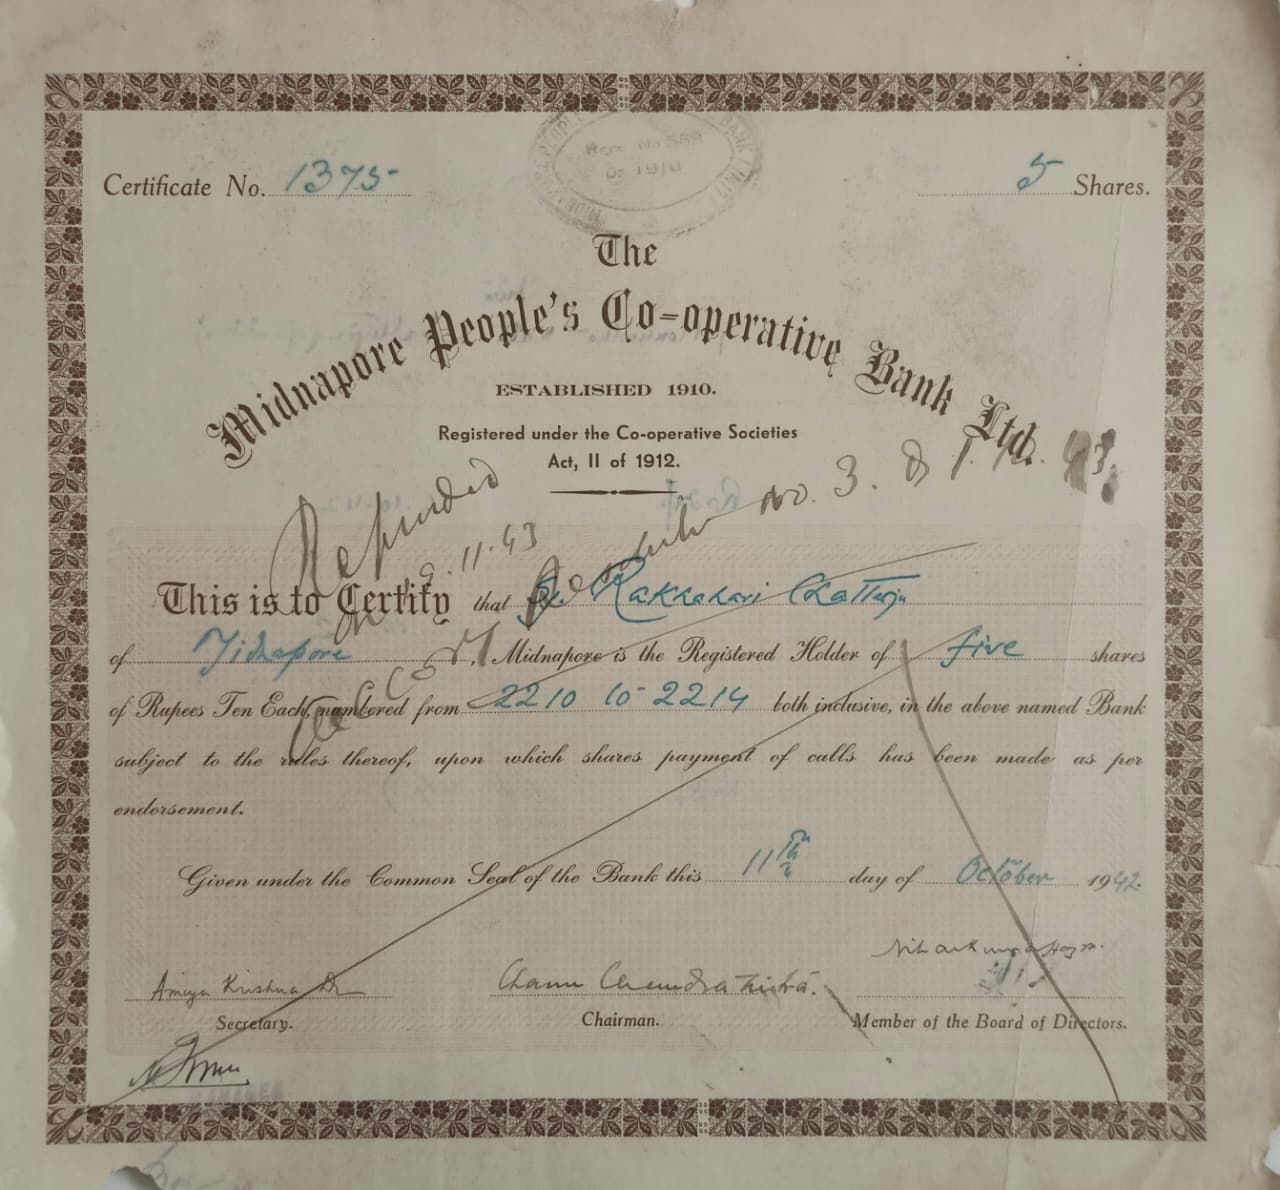 Regd. No 689
Of 1910
Certificate No. 1375
5 Shares.
The
Midnapore People's Co-operative Bank Ltd.
ESTABLISHED 1910.
Registered under the Co-operative Societies
Act, II of 1912.
Refunded
on 9.11.43
Resolution no. 3. of
This is to Certify that Sj. Rakhahari Chatterji
of Midnapore, Midnapore is the Registered Holder of five shares
of Rupees Ten Each, numbered from 2210 to 2214 both inclusive, in the above named Bank
subject to the rules thereof, upon which shares payment of calls has been made as per
endorsement.
Given under the Common Seal of the Bank this 11th day of October 1942.
Amiya Krishna
Charu Chandra Mitra.
Secretary.
Chairman.
Member of the Board of Directors.